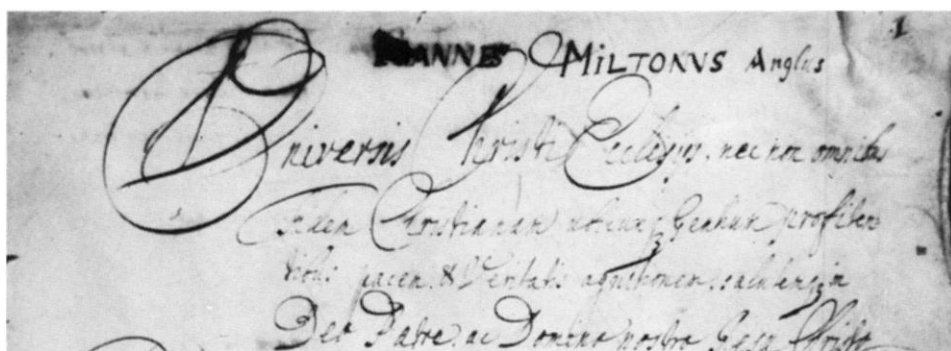 1
IOANNES MILTONVS Anglus
Universis Christi Ecclesijs, nec non omnibus
Fidem Christianam ubicunq Gentium profiten
tibus pacem & Veritatis agnitionem, salutemq in
Deo Patre, ac Domino nostro Jesu Christo